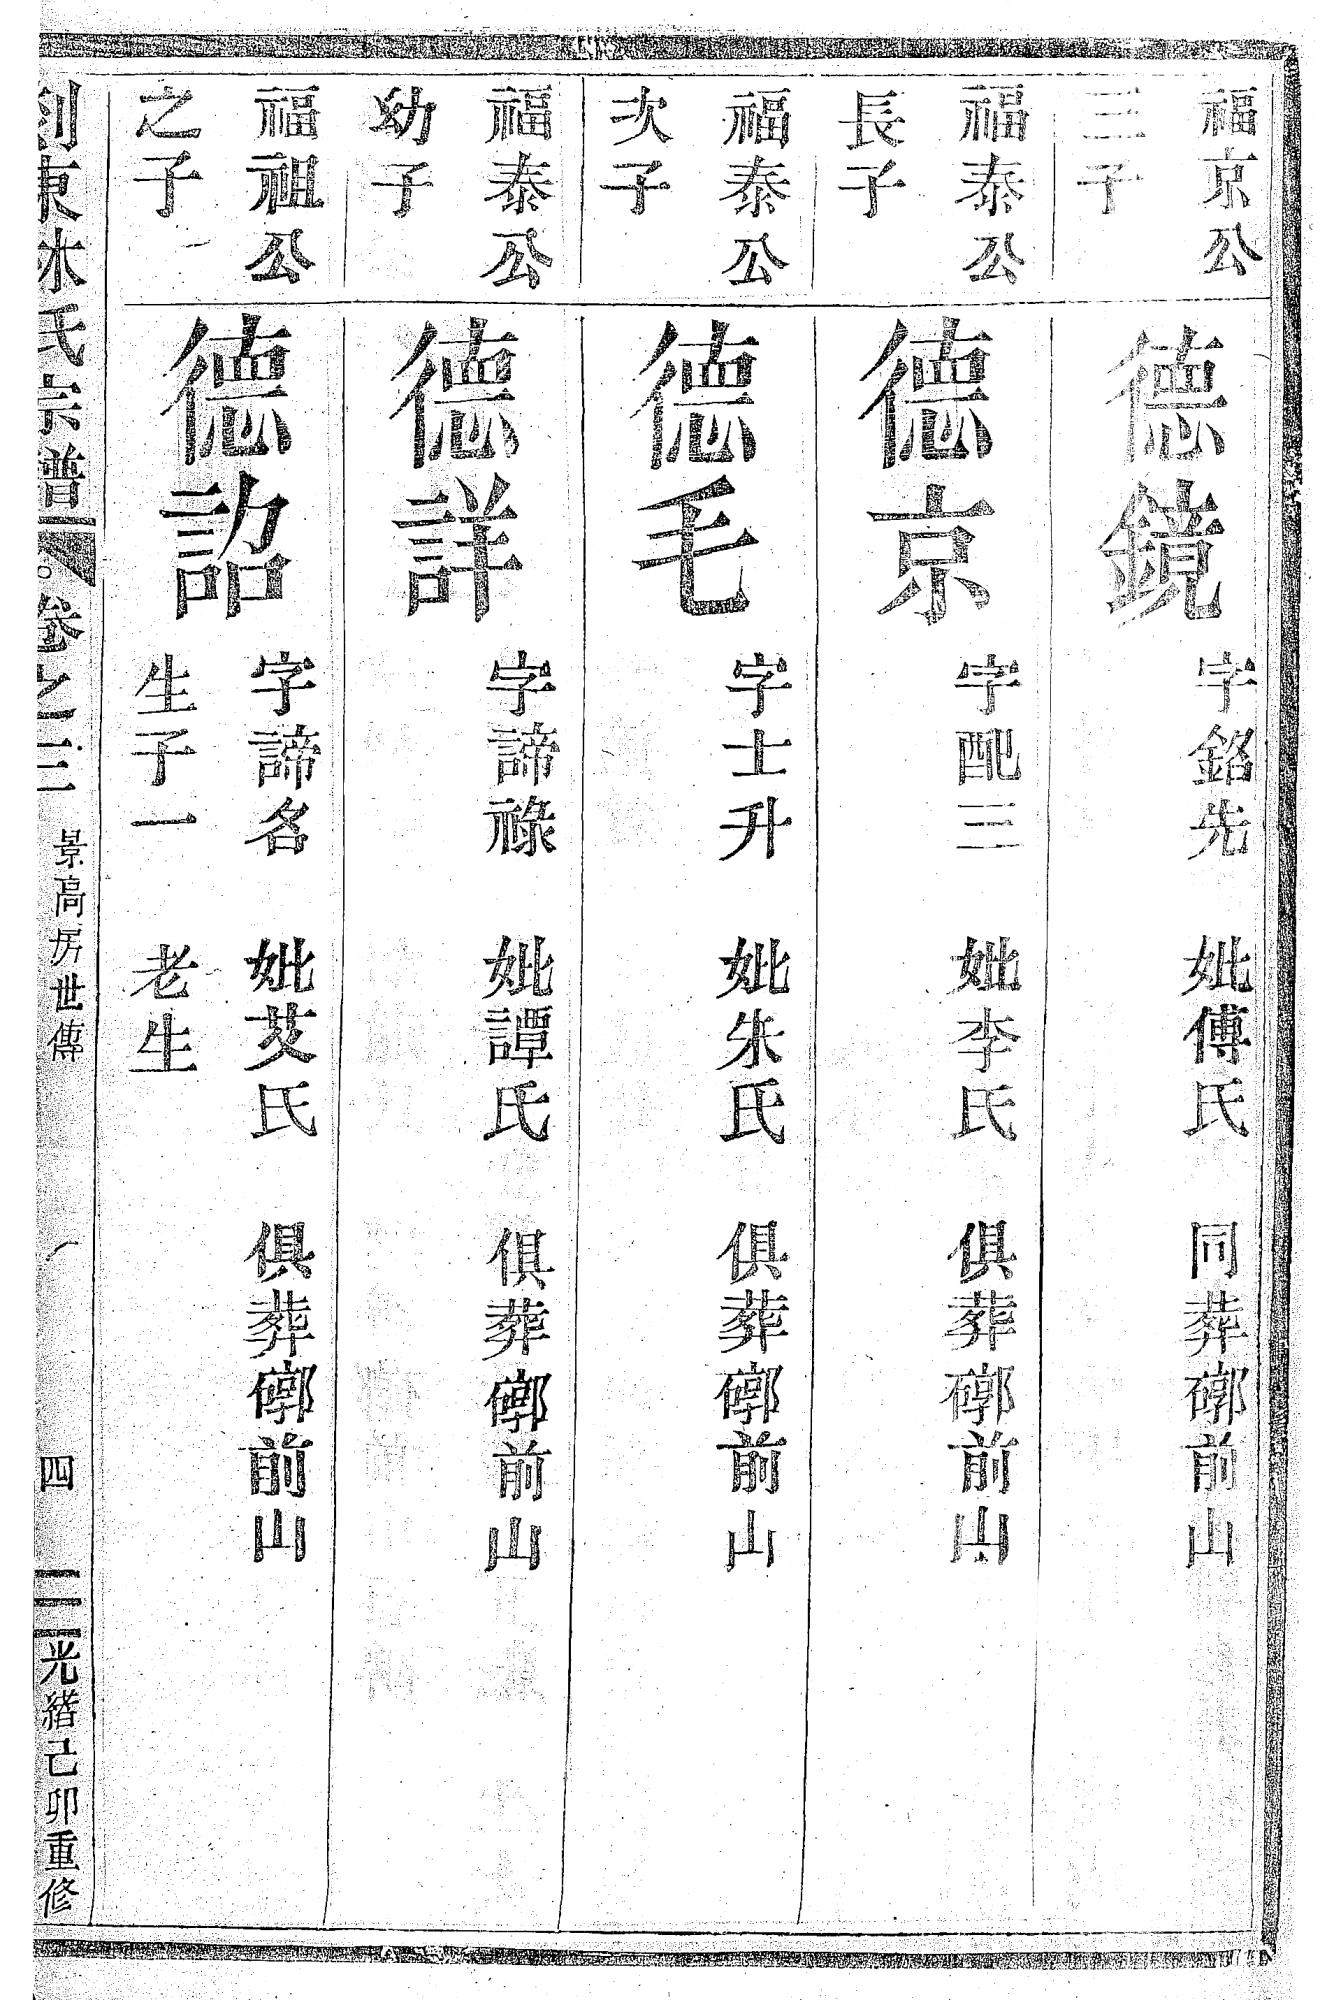 福京公
三子
德鏡
字銘先 妣傅氏 同葬𥕏前山
福泰公
長子
德京
字配三 妣李氏 俱葬𥕏前山
福泰公
次子
德毛
字士升 妣朱氏 俱葬𥕏前山
福泰公
幼子
德詳
字諦祿 妣譚氏 俱葬𥕏前山
福祖公
之子
德詔
字諦名 妣艾氏 俱葬𥕏前山
生子一 老生
東木氏宗譜 卷之三 景高房世傳 四 光緒己卯重修